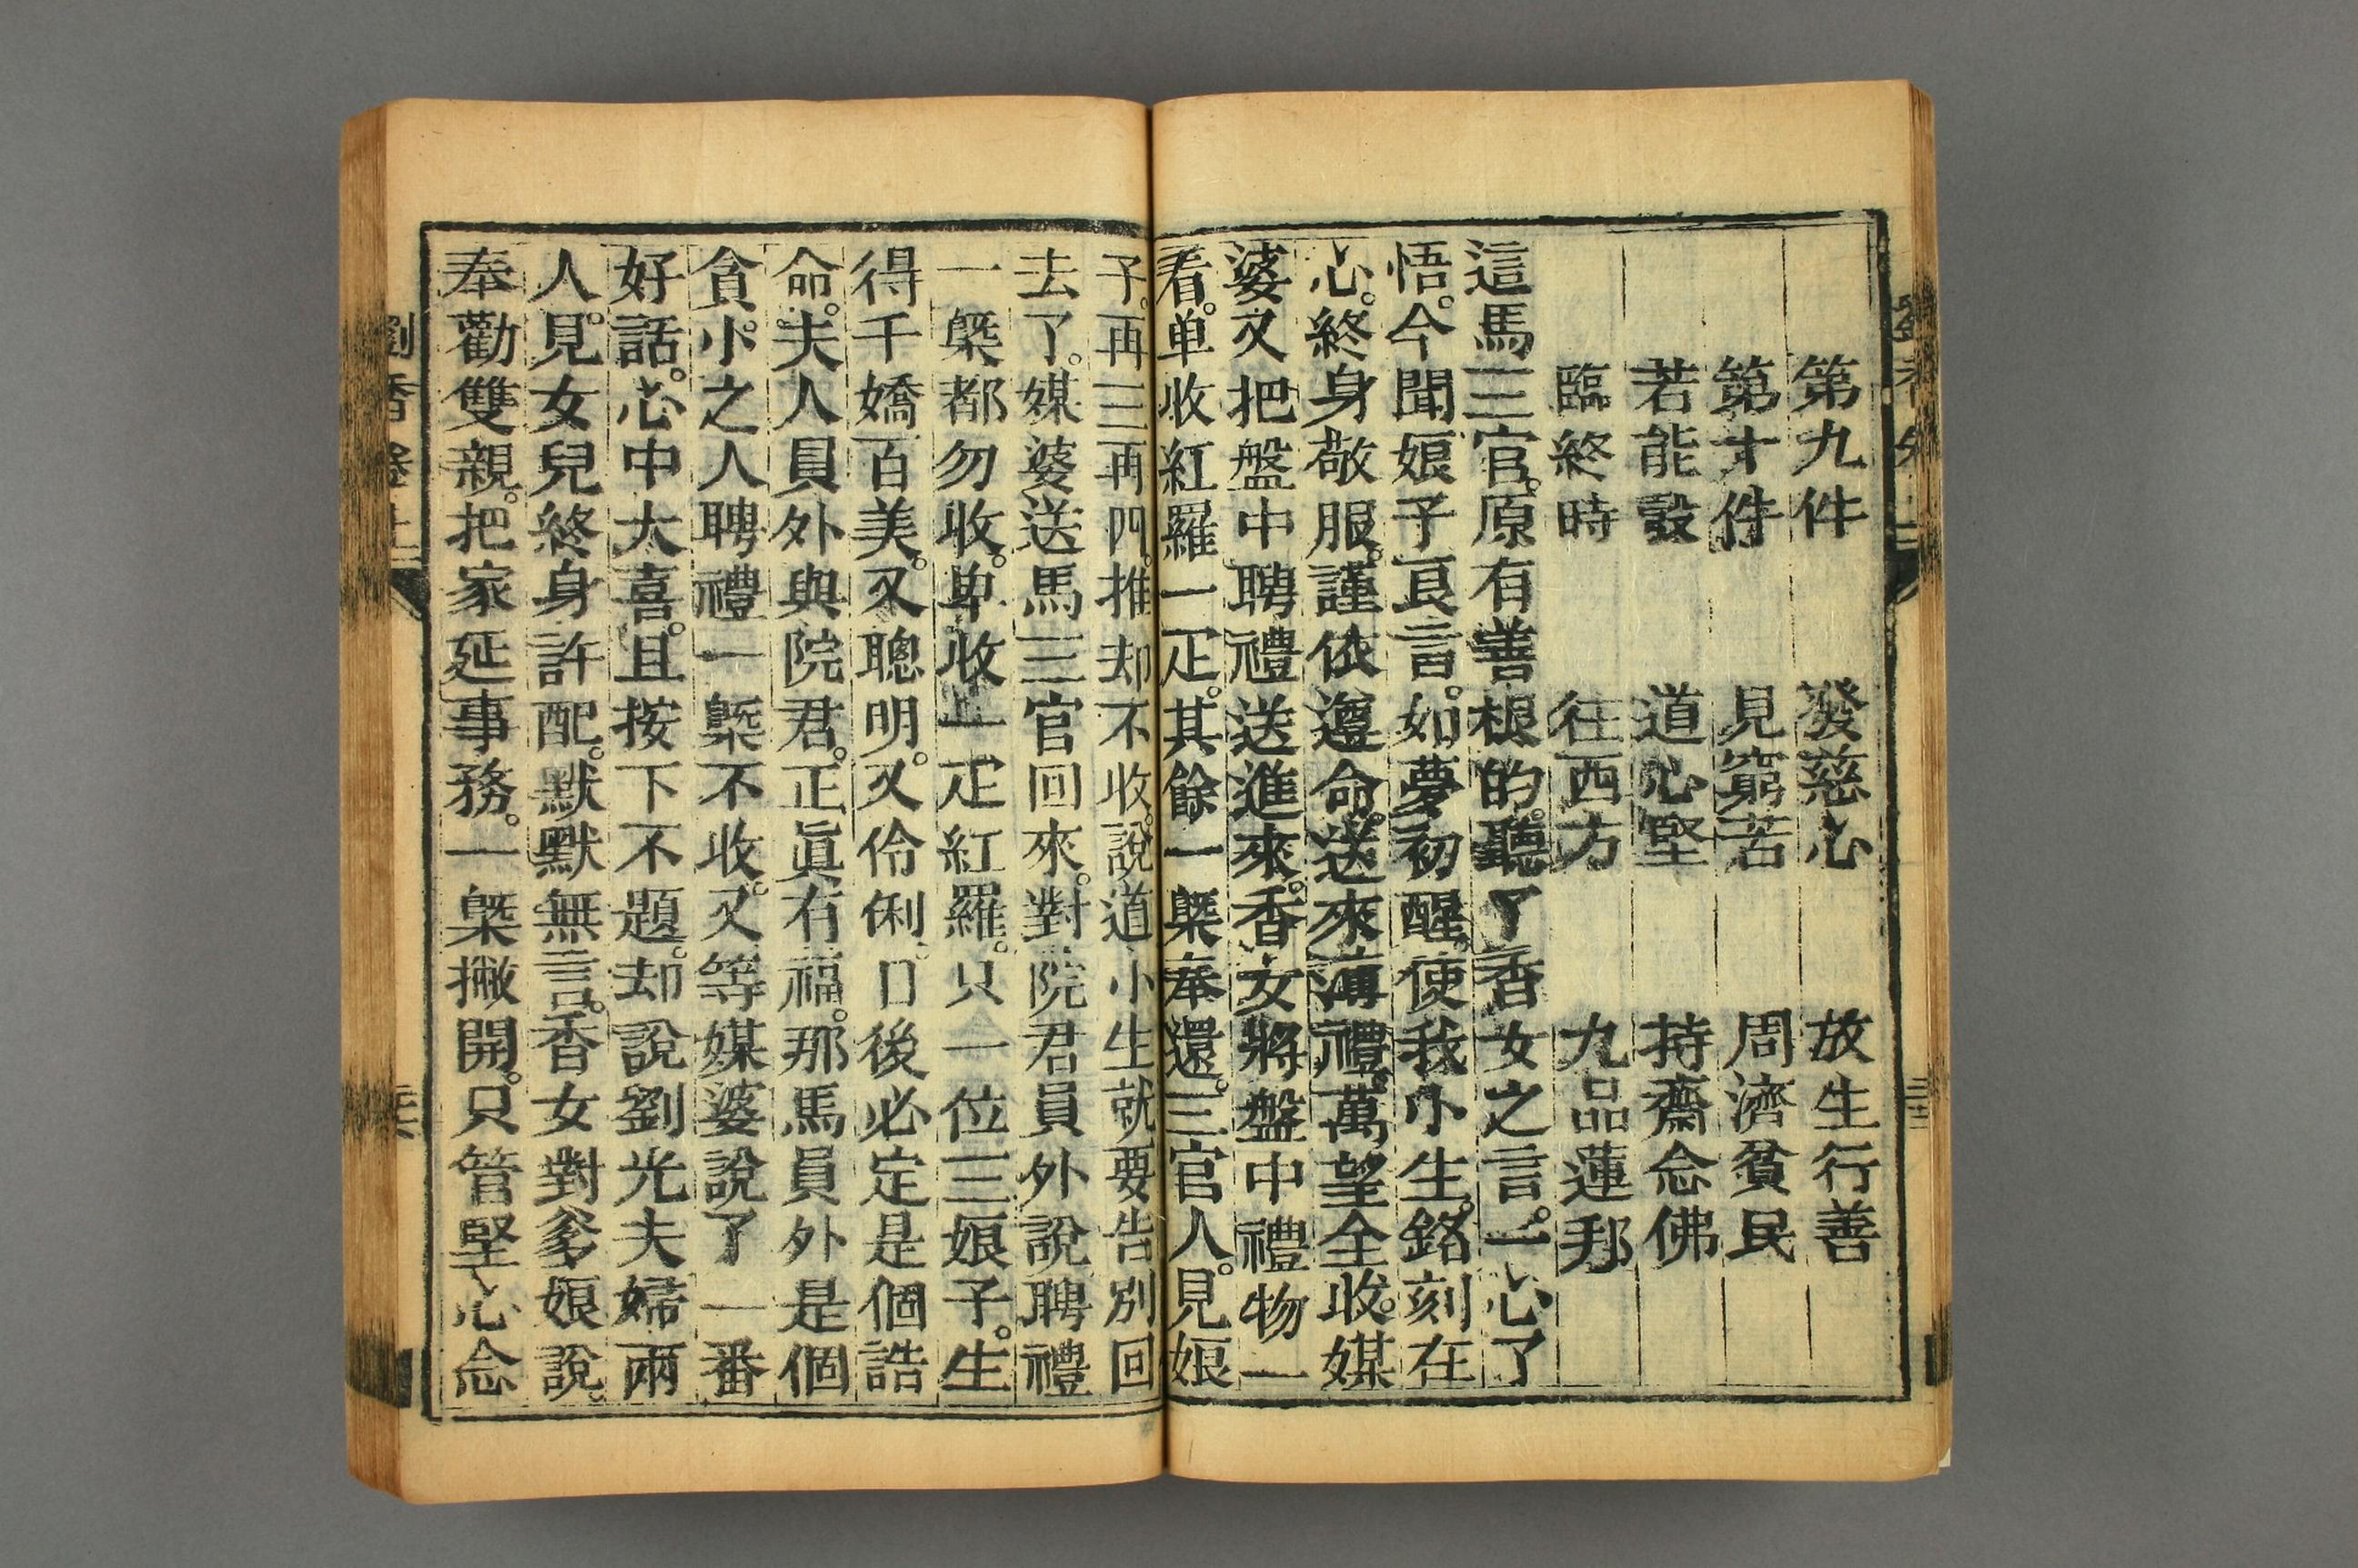 第九件　發慈心　放生行善
第十件　見窮苦　周濟貧民
若能彀　道心堅　持齋念佛
臨終時　往西方　九品蓮邦
這馬三官。原有善根的。聽了香女之言。一心了
悟。今聞娘子良言。如夢初醒。使我小生。銘刻在
心。終身敬服。謹依遵命。送來薄禮。萬望全收。媒
婆又把盤中聘禮送進來。香女將盤中禮物一
看。单收紅羅一疋。其餘一槩奉還。三官人。見娘
子。再三再四。推却不收。說道小生就要告别回
去了。媒婆送馬三官回來。對院君員外說聘禮
一槩都勿收。单收一疋紅羅。只一位三娘子。生
得千嬌百美。又聰明。又伶俐。日後必定是個誥
命。夫人員外與院君。正眞有福。那馬員外是個
貪小之人聘禮一槩不收。又等媒婆說了一番
好話。心中大喜。且按下不題。却說劉光夫婦兩
人。見女兒終身許配。默默無言。香女對爹娘說。
奉勸雙親。把家延事務。一槩撇開。只管堅心念
劉香卷上